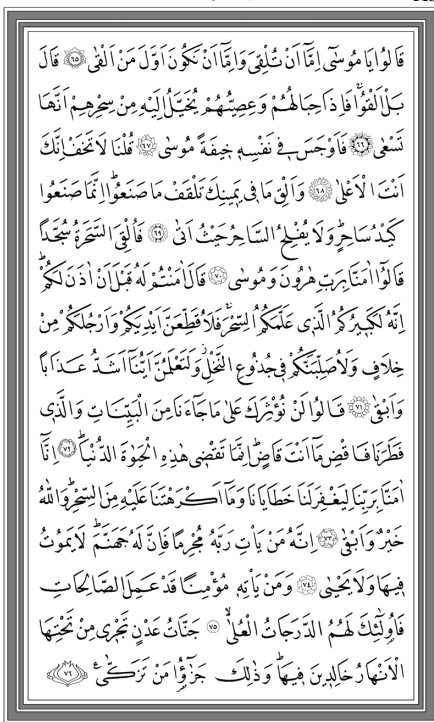 قَالُوا يَا مُوسٰٓى اِمَّٓا اَنْ تُلْقِيَ وَاِمَّٓا اَنْ نَكُونَ اَوَّلَ مَنْ اَلْقٰى ﴿٦٥﴾ قَالَ
بَلْ اَلْقُواۚ فَاِذَا حِبَالُهُمْ وَعِصِيُّهُمْ يُخَيَّلُ اِلَيْهِ مِنْ سِحْرِهِمْ اَنَّهَا
تَسْعٰى ﴿٦٦﴾ فَاَوْجَسَ فٖي نَفْسِهٖ خٖيفَةً مُوسٰى ﴿٦٧﴾ قُلْنَا لَا تَخَفْ اِنَّكَ
اَنْتَ الْاَعْلٰى ﴿٦٨﴾ وَاَلْقِ مَا فٖي يَمٖينِكَ تَلْقَفْ مَا صَنَعُواۜ اِنَّمَا صَنَعُوا
كَيْدُ سَاحِرٍۜ وَلَا يُفْلِحُ السَّاحِرُ حَيْثُ اَتٰى ﴿٦٩﴾ فَاُلْقِيَ السَّحَرَةُ سُجَّدًا
قَالُٓوا اٰمَنَّا بِرَبِّ هٰرُونَ وَمُوسٰى ﴿٧٠﴾ قَالَ اٰمَنْتُمْ لَهُ قَبْلَ اَنْ اٰذَنَ لَكُمْۜ
اِنَّهُ لَكَبٖيرُكُمُ الَّذٖي عَلَّمَكُمُ السِّحْرَۚ فَلَاُقَطِّعَنَّ اَيْدِيَكُمْ وَاَرْجُلَكُمْ مِنْ
خِلَافٍ وَلَاُصَلِّبَنَّكُمْ فٖي جُذُوعِ النَّخْلِۘ وَلَتَعْلَمُنَّ اَيُّنَٓا اَشَدُّ عَذَابًا
وَاَبْقٰى ﴿٧١﴾ قَالُوا لَنْ نُؤْثِرَكَ عَلٰى مَا جَٓاءَنَا مِنَ الْبَيِّنَاتِ وَالَّذٖي
فَطَرَنَا فَاقْضِ مَٓا اَنْتَ قَاضٍۜ اِنَّمَا تَقْضٖي هٰذِهِ الْحَيٰوةَ الدُّنْيَاۜ ﴿٧٢﴾ اِنَّٓا
اٰمَنَّا بِرَبِّنَا لِيَغْفِرَ لَنَا خَطَايَانَا وَمَٓا اَكْرَهْتَنَا عَلَيْهِ مِنَ السِّحْرِۜ وَاللّٰهُ
خَيْرٌ وَاَبْقٰى ﴿٧٣﴾ اِنَّهُ مَنْ يَأْتِ رَبَّهُ مُجْرِمًا فَاِنَّ لَهُ جَهَنَّمَۜ لَا يَمُوتُ
فٖيهَا وَلَا يَحْيٰى ﴿٧٤﴾ وَمَنْ يَأْتِهٖ مُؤْمِنًا قَدْ عَمِلَ الصَّالِحَاتِ
فَاُو۬لٰٓئِكَ لَهُمُ الدَّرَجَاتُ الْعُلٰىۙ ﴿٧٥﴾ جَنَّاتُ عَدْنٍ تَجْرٖي مِنْ تَحْتِهَا
الْاَنْهَارُ خَالِدٖينَ فٖيهَاۜ وَذٰلِكَ جَزٰٓؤُا مَنْ تَزَكّٰىࣖ ﴿٧٦﴾